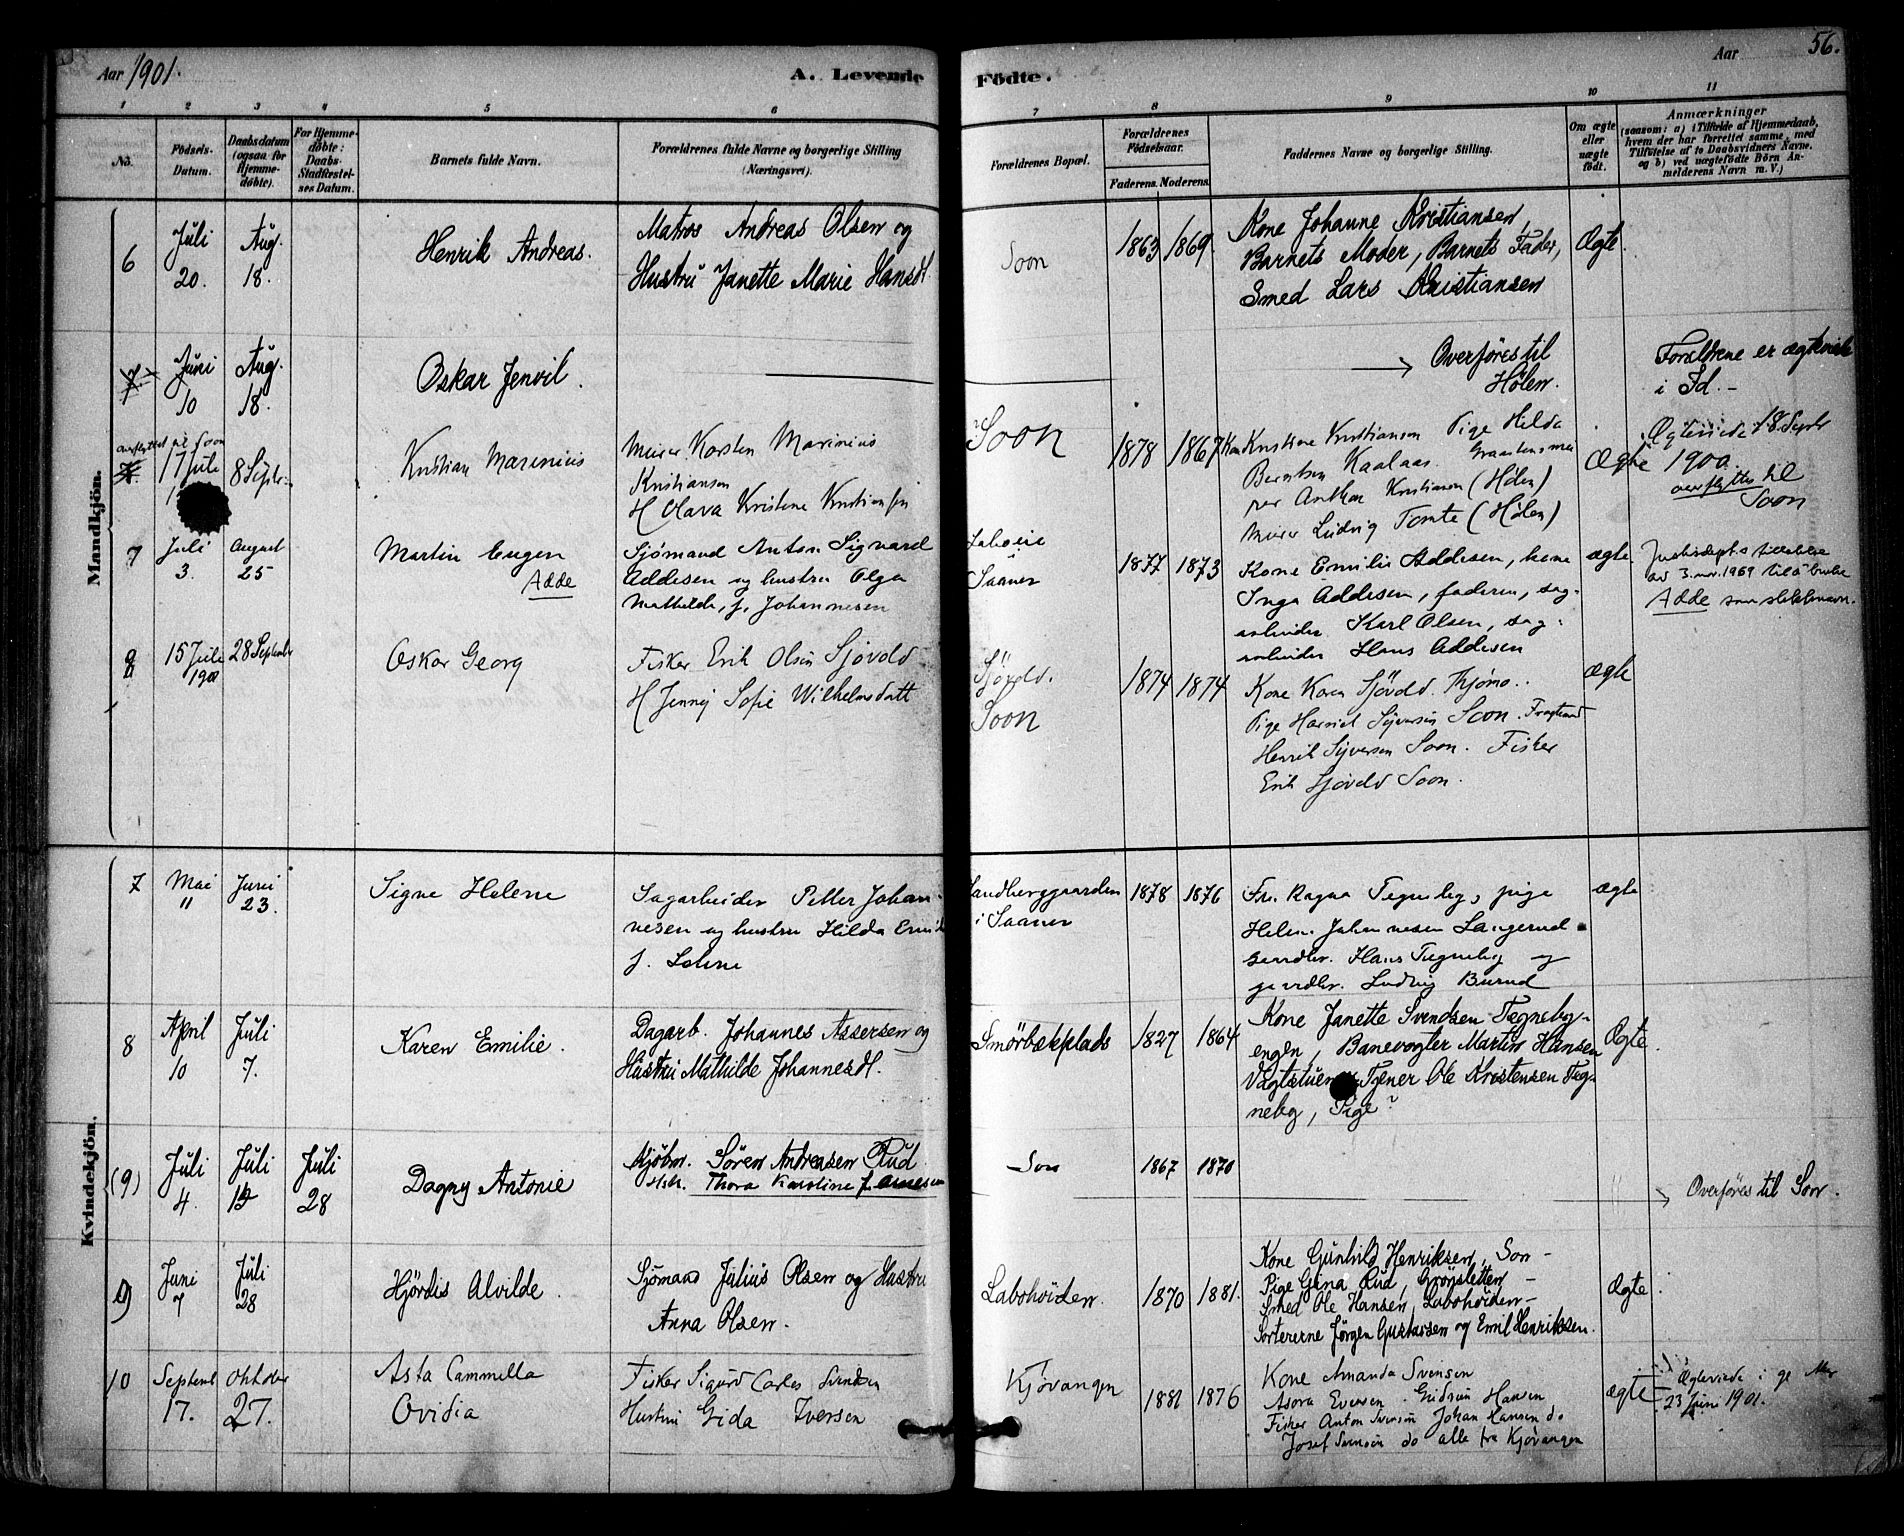 Aar 1901.
A. Levende
Födte.
Aar
56.
1 2 3 4 5 6 7 8 9 10 11
No.
Födsels-
Datum.
Daabsdatum
(ogsaa for
Hjemme-
döbte).
For Hjemme-
döbte:
Daabs-
Stadfæstel-
ses Datum.
Barnets fulde Navn.
Forældrenes fulde Navne og borgerlige Stilling
(Næringsvei).
Forældrenes Bopæl.
Forældrenes
Födselsaar.
Faderens. Moderens.
Faddernes Navne og borgerlige Stilling.
Om ægte
eller
uægte
födt.
Anmærkninger
(saasom: a) i Tilfælde af Hjemmedaab,
hvem der har forrettet samme, med
Tilföielse af to Daabsvidners Navne,
og b) ved uægtefödte Börn An-
melderens Navn m. V.)
Mandkjön.
6
Juli
20.
Aug.
18.
Henrik Andreas.
Matros Andreas Olsen og
Hustru Janette Marie Hansdt
Soon
1863 1869.
Kone Johanne Kristiansen,
Barnets Moder, Barnets Fader,
Smed Lars Kristiansen
Ægte.
7
Juni
10
Aug.
18.
Oskar Jenvil.
Overföres til
Hölen.
Forældrene er ægteviede
i Fd. -
overflyttet til Soon
17 Juli
8 Septbr.
Kristian Marinius
Murer Karsten Marinius
Kristiansen
H Olava Kristine Kristiansen
Soon
1878 1867
Kone Kristine Kristiansen Pige Hilda
Berntsen Kaalaas. Graastensmu
rer Anthon Kristiansen (Hölen)
Murer Ludvig Tomte (Hölen)
Ægte
Ægteviede 18 Septbr
1900
overflyttes til
Soon
7
Juli
3.
August
25
Martin Eugen
Adde
Sjömand Anton Sigvard
Addesen og hustru Olga
Mathilde, f. Johannesen
Saaner
1877 1873
Kone Emilie Addesen, kone
Inga Addesen, faderen, sag-
arbeider Karl Olsen, sag-
arbeider Hans Addesen
ægte.
Justisdept.s tillatelse
av 3. nov. 1969 til å bruke
Adde som slektsnavn.
8
15 Juli
1901
28 September
Oskar Georg
Fisker Erik Olsen Sjövold
H Jenny Sofie Wilhelmsdatt
Sjövold.
Soon
1874 1874
Kone Karen Sjövold. Thjömö.
Pige Harriet Syversen Soon.
Henrik Syversen Soon. Fisker
Erik Sjövold Soon.
ægte
Kvindekjön.
7
Mai
"
Juni
23.
Signe Helene
Sagarbeider Petter Johan-
nesen og hustru Hilda Emilie
f. Lohne
Sandberggaarden
i Saaner
1878 1876
Fru Ragna Tegneby, pige
Helen. Johannesen Langerud
gaardbr. Hans Tegneby og
gaardbr. Ludvig Burud
ægte
8
April
10
Juli
7.
Karen Emilie.
Dagarb. Johannes Assersen og
Hustru Mathilde Johannesdt.
Smörbækplads
1827 1864
Kone Janette Svendsen Tegneby-
engen, Banevogter Martin Hansen
Vagtstuen, Tjener Ole Kristensen Teg-
neby, Pige?
Ægte.
(9)
Juli
4.
Juli
Juli
28
Dagny Antonie
Kjöbm. Sören Andreasen Rud
Thora Karoline
Son
1867 1870
Overföres til Son.
9
Juni
7
Juli
28
Hjördis Alvilde.
Sjömand Julius Olsen og Hustru
Anna Olsen.
Labohöiden.
1870 1881.
Kone Gunhild Henriksen, Son -
Pige Gina Rud, Grönsletten -
Smed Ole Hansen, Labohöiden -
Sortererne Jörgen Gustavsen og Emil Henriksen.
Ægte.
10
Septemb
17.
Oktober
27.
Asta Cammilla
Ovidia
Fisker Sigurd Carlos Svendsen
Hustru Gida Iversen
Kjövangen
1881 1876
Kone Amanda Svensen
Asora Eversen. Gudrun Hansen
Fisker Anton Svensen Johan Hansen do
Josef Svensen do alle fra Kjövangen
ægte
Ægteviede i
23 Juni 1901.